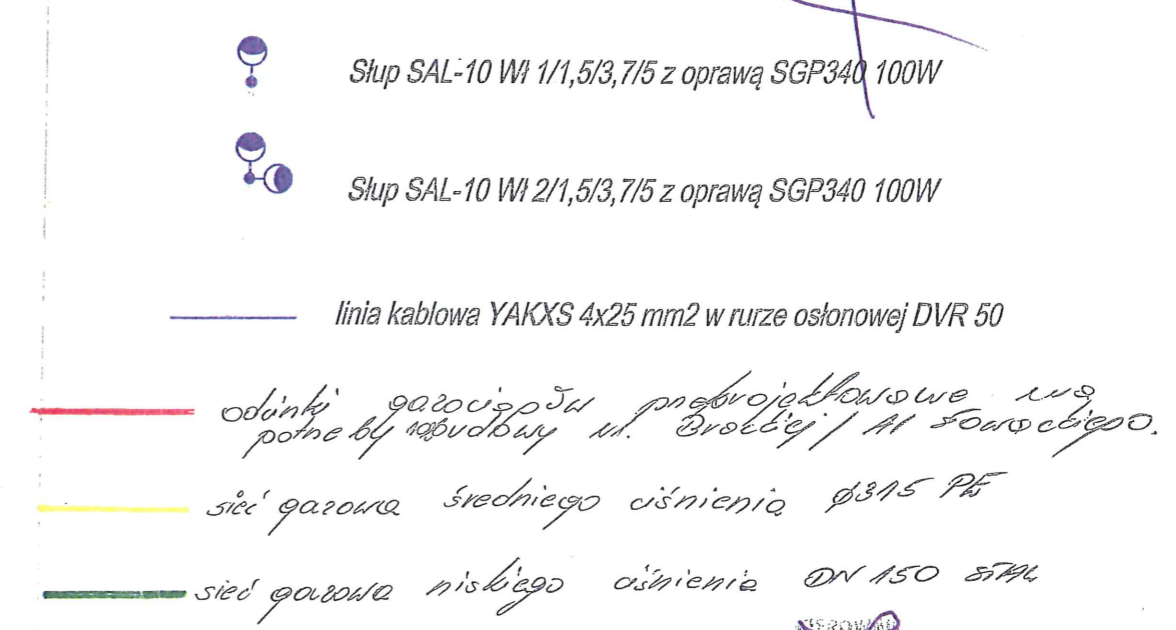 Słup SAL-10 Wł 1/1,5/3,7/5 z oprawą SGP340 100W
Słup SAL-10 Wł 2/1,5/3,7/5 z oprawą SGP340 100W
linia kablowa YAKXS 4x25 mm2 w rurze osłonowej DVR 50
odcinki gazociągów przeprojektowowe na
potrzeby ul. / Al
sieć gazowa średniego ciśnienia ø315 PE
sieć gazowa niskiego ciśnienia DN 150 STAL